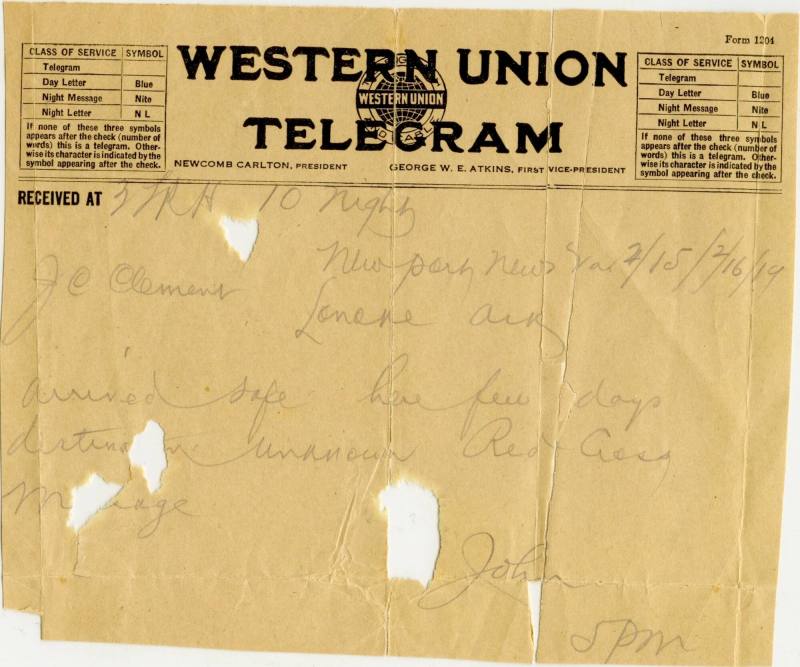 Form 1204
CLASS OF SERVICE SYMBOL
Telegram
Day Letter Blue
Night Message Nite
Night Letter N L
If none of these three symbols
appears after the check (number of
words) this is a telegram. Other-
wise its character is indicated by the
symbol appearing after the check.
WESTERN UNION
WESTERN UNION
TELEGRAM
NEWCOMB CARLTON, PRESIDENT GEORGE W. E. ATKINS, FIRST VICE-PRESIDENT
CLASS OF SERVICE SYMBOL
Telegram
Day Letter Blue
Night Message Nite
Night Letter N L
If none of these three symbols
appears after the check (number of
words) this is a telegram. Other-
wise its character is indicated by the
symbol appearing after the check.
RECEIVED AT 10 Night
Newport News Va 2/15/2/16/19
J C Clement
Lonoke Ark
arrived safe here few days
unknown Red Cross
John
5 PM